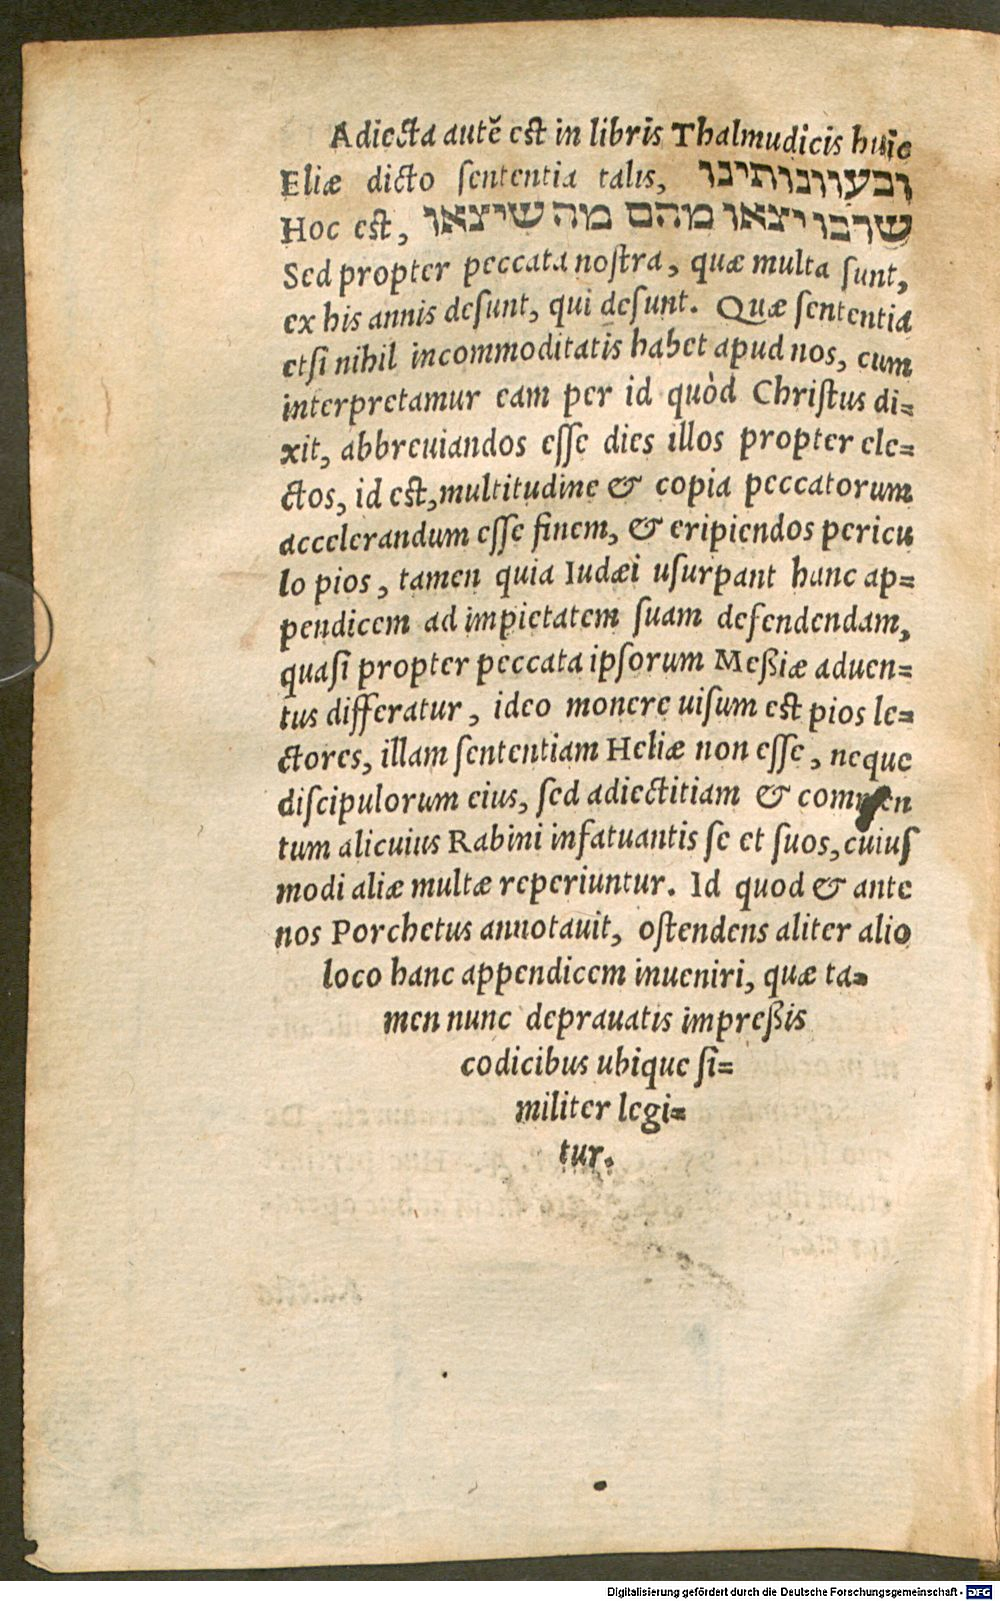 Adiecta autē est in libris Thalmudicis huic
Eliæ dicto sententia talis, ובעוונותינו
Hoc est, שרבו יצאו מהם מה שיצאו
Sed propter peccata nostra, quæ multa sunt,
ex his annis desunt, qui desunt. Quæ sententia
etsi nihil incommoditatis habet apud nos, cum
interpretamur eam per id quòd Christus di=
xit, abbreuiandos esse dies illos propter ele=
ctos, id est, multitudine & copia peccatorum
accelerandum esse finem, & eripiendos pericu
lo pios, tamen quia Iudæi usurpant hanc ap=
pendicem ad impietatem suam defendendam,
quasi propter peccata ipsorum Meßiæ aduen=
tus differatur, ideo monere uisum est pios le=
ctores, illam sententiam Heliæ non esse, neque
discipulorum eius, sed adiectitiam & commen
tum alicuius Rabini infatuantis se et suos, cuius
modi aliæ multæ reperiuntur. Id quod & ante
nos Porchetus annotauit, ostendens aliter alio
loco hanc appendicem inueniri, quæ ta=
men nunc deprauatis impreßis
codicibus ubique si=
militer legi=
tur.
Digitalisierung gefördert durch die Deutsche Forschungsgemeinschaft - DFG